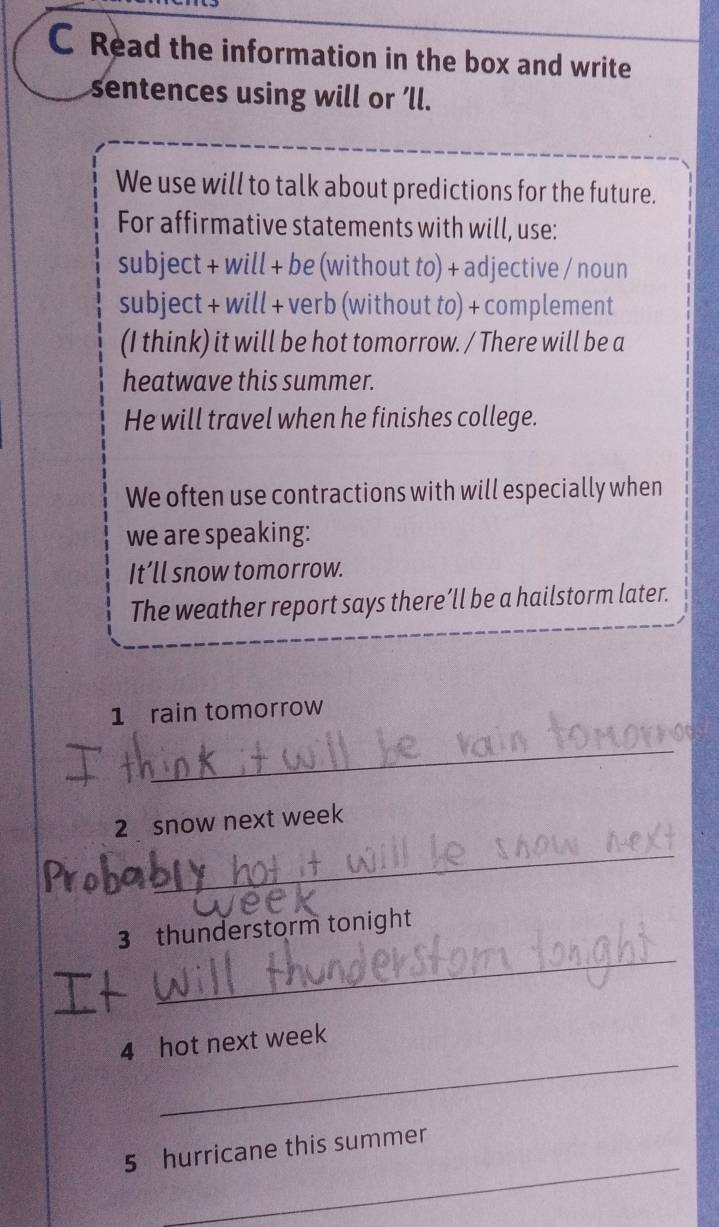 C Read the information in the box and write
sentences using will or 'll.
We use will to talk about predictions for the future.
For affirmative statements with will, use:
subject + will + be (without to) + adjective / noun
subject + will + verb (without to) + complement
(I think) it will be hot tomorrow. / There will be a
heatwave this summer.
He will travel when he finishes college.
We often use contractions with will especially when
we are speaking:
It'll snow tomorrow.
The weather report says there'll be a hailstorm later.
1 rain tomorrow
I think it will be rain tomorrow
2 snow next week
Probably hot it will be snow next
week
3 thunderstorm tonight
It will thunderstom tonight
4 hot next week
5 hurricane this summer